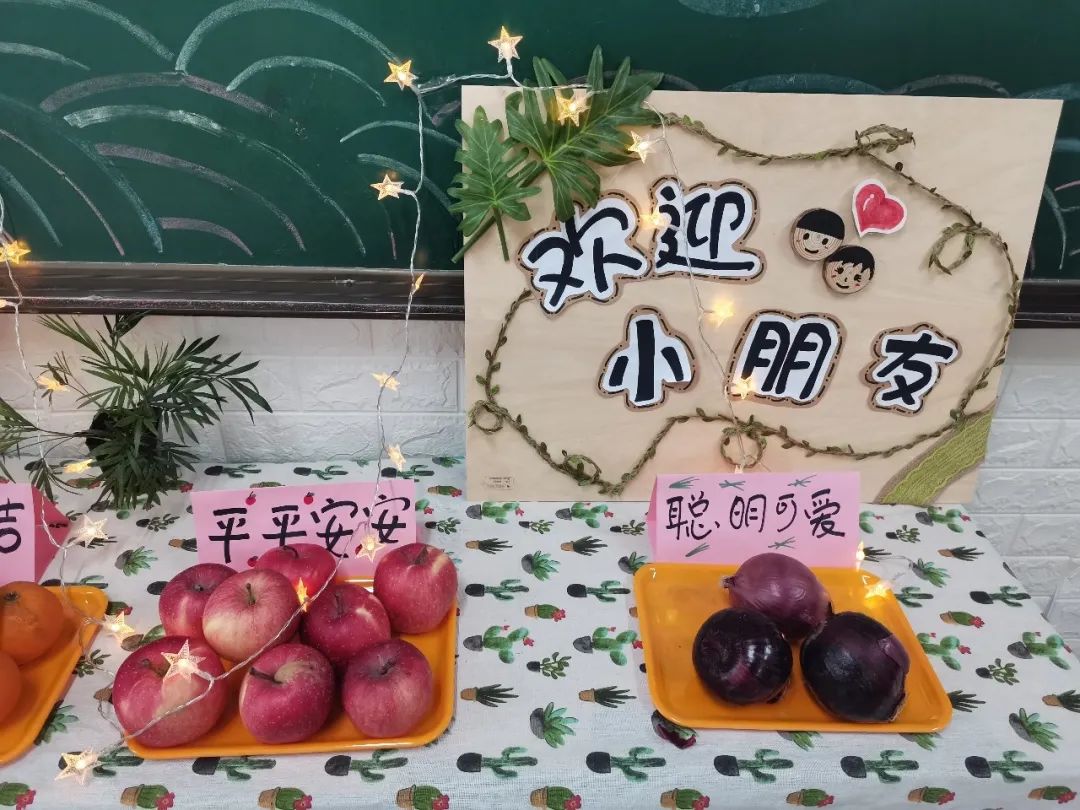 欢迎
小朋友
吉
平平安安
聪明可爱